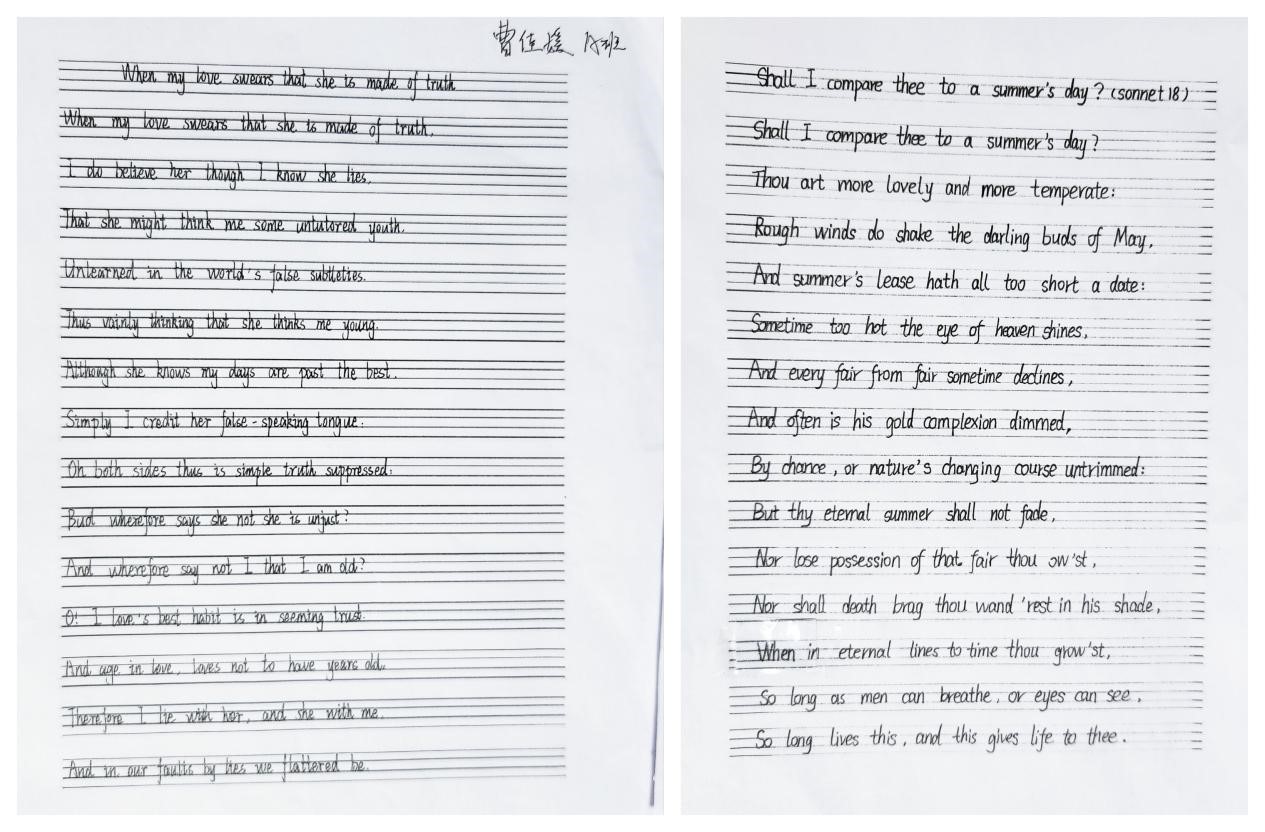 曹佳媛 18班
When my love swears that she is made of truth
When my love swears that she is made of truth.
I do believe her though I know she lies.
That she might think me some untutored youth.
Unlearned in the world's false subtleties.
Thus vainly thinking that she thinks me young.
Although she knows my days are past the best.
Simply I credit her false-speaking tongue:
On both sides thus is simple truth suppressed:
But wherefore says she not she is unjust?
And wherefore say not I that I am old?
O! I love's best habit is in seeming trust.
And age in love, loves not to have years old.
Therefore I lie with her, and she with me.
And in our faults by lies we flattered be.
Shall I compare thee to a summer's day? (sonnet 18)
Shall I compare thee to a summer's day?
Thou art more lovely and more temperate:
Rough winds do shake the darling buds of May,
And summer's lease hath all too short a date:
Sometime too hot the eye of heaven shines,
And every fair from fair sometime declines,
And often is his gold complexion dimmed,
By chance, or nature's changing course untrimmed:
But thy eternal summer shall not fade,
Nor lose possession of that fair thou ow'st,
Nor shall death brag thou wand'rest in his shade,
When in eternal lines to time thou grow'st,
So long as men can breathe, or eyes can see,
So long lives this, and this gives life to thee.